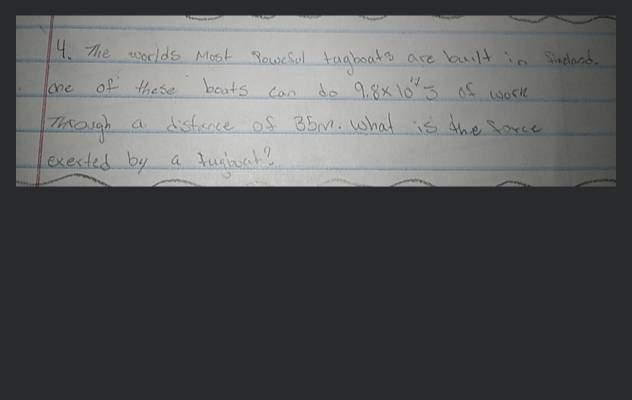 4. The worlds Most Powerful tugboats are built in Finland.
one of these boats can do 9.8x10⁷J of work
Through a distance of 35m. What is the force
exerted by a tugboat?